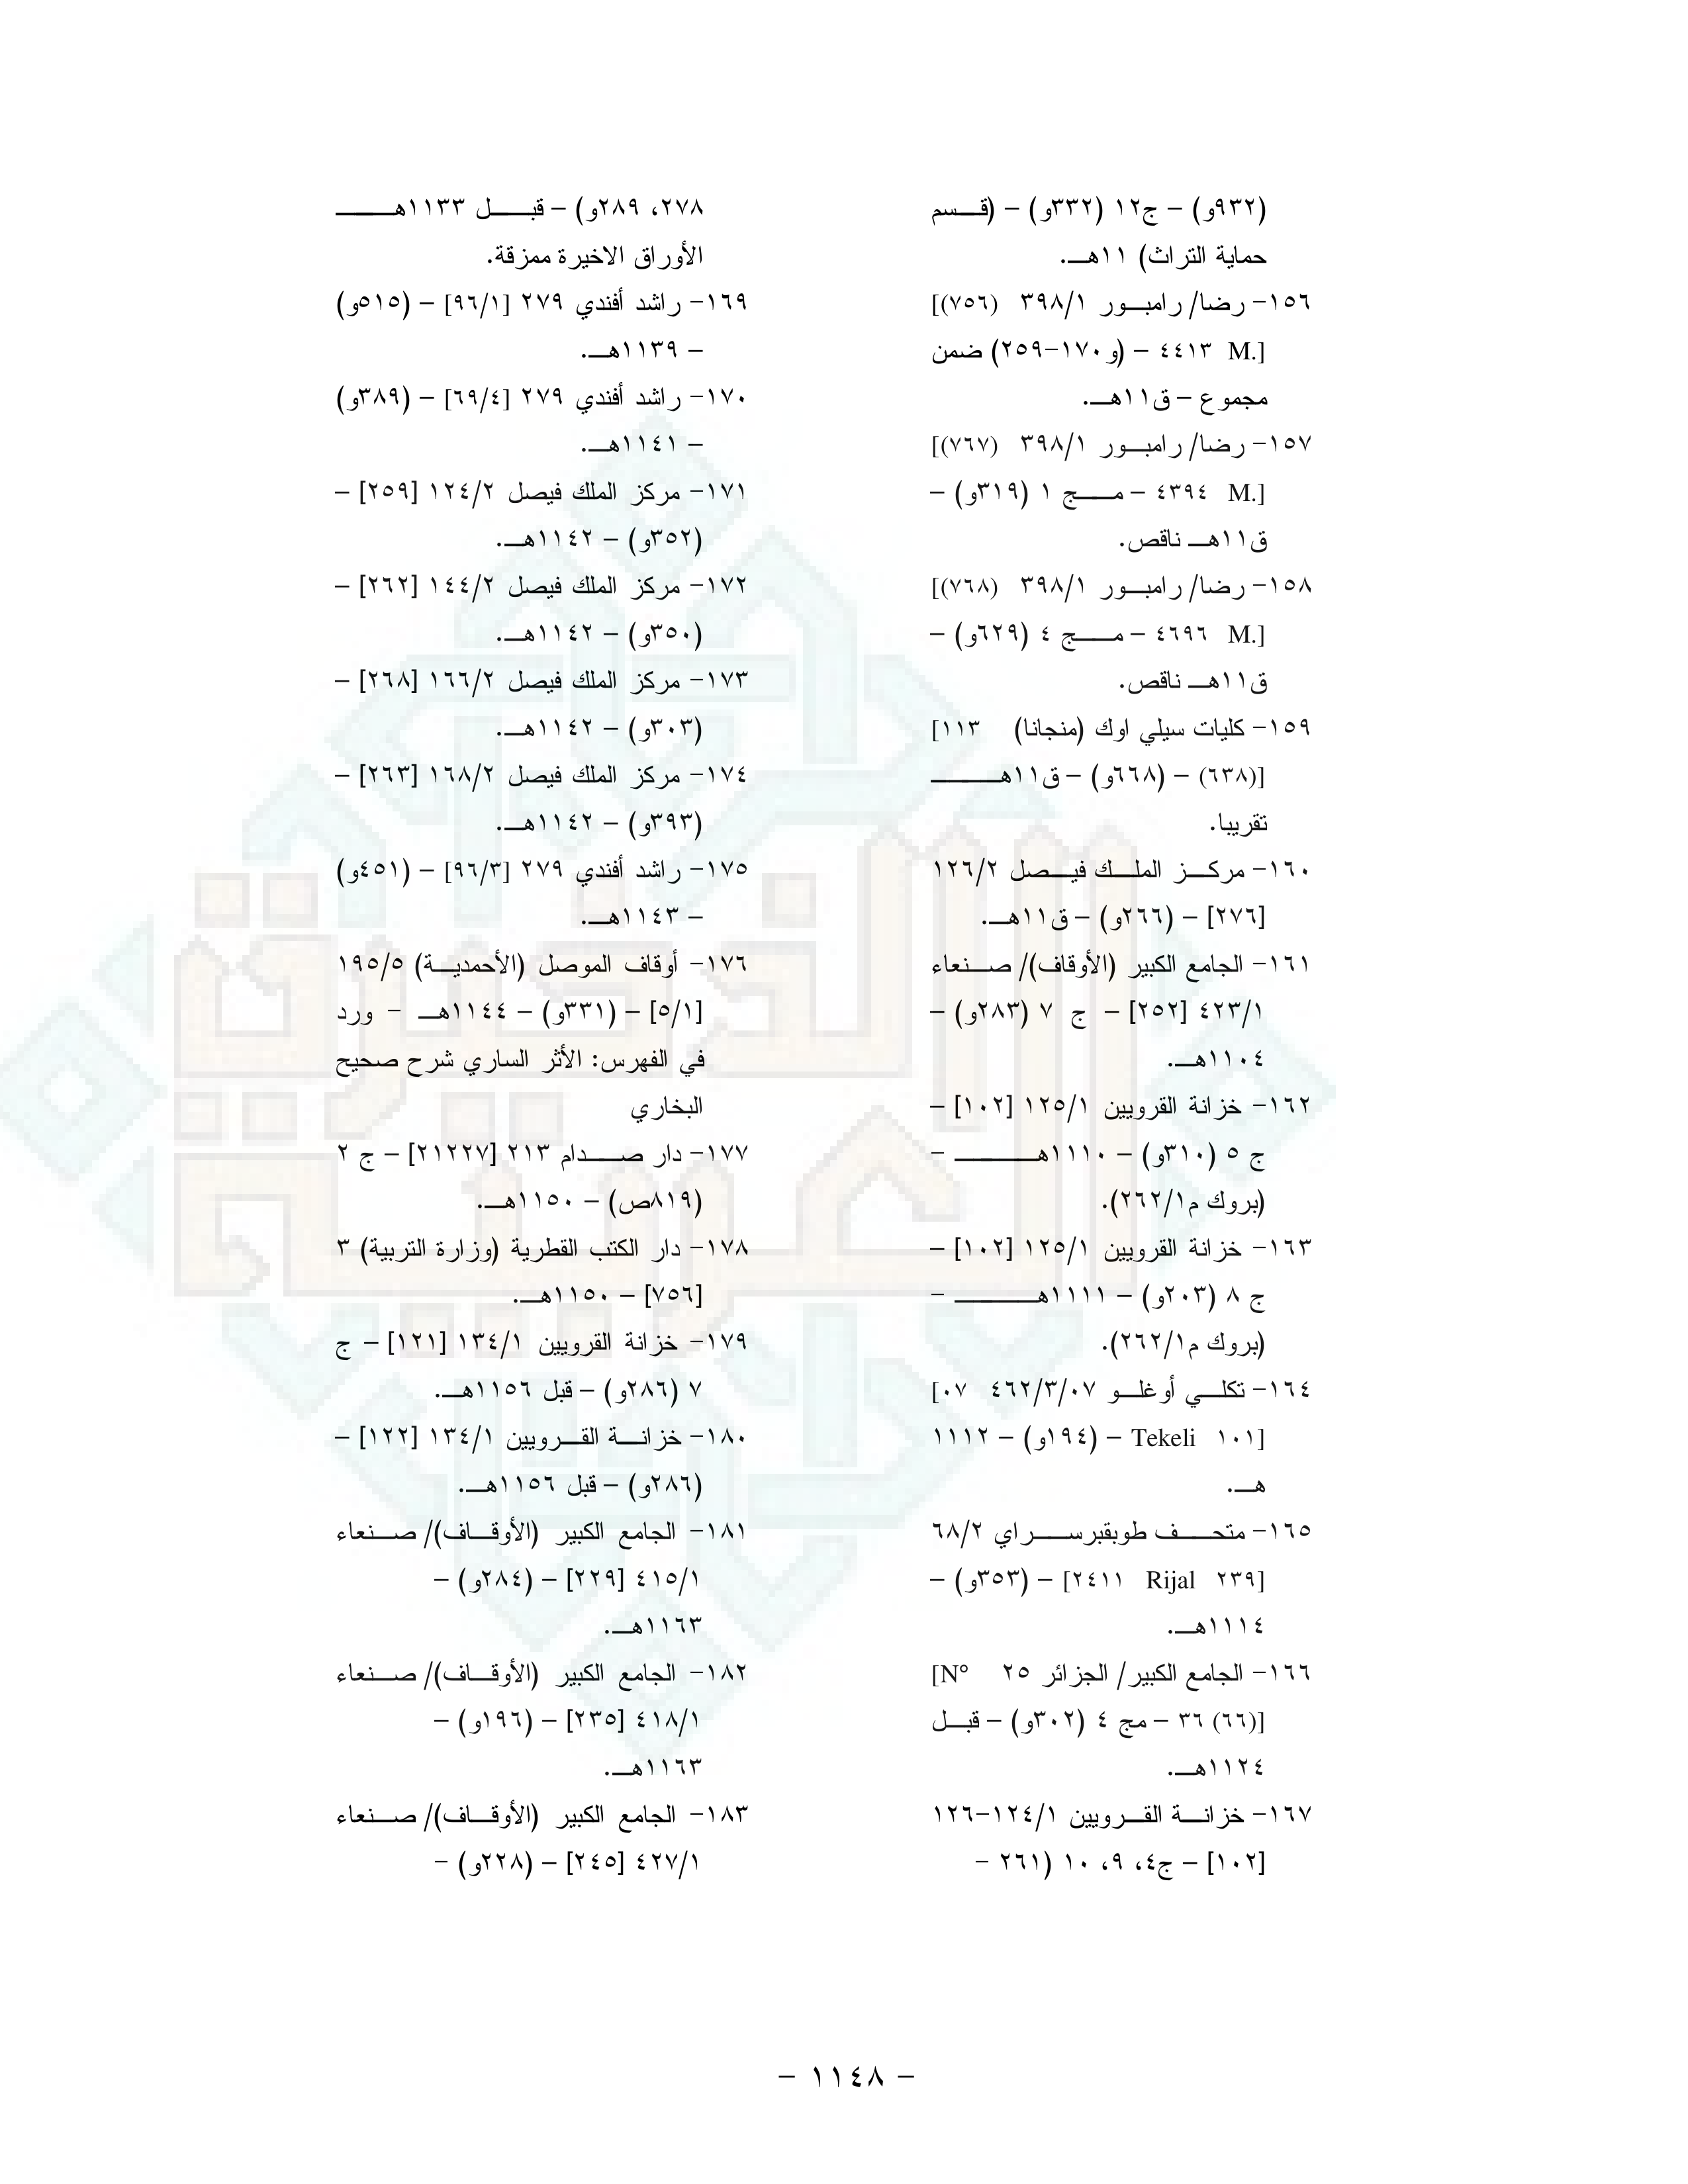 (٩٣٢و) – ج١٢ (٣٣٢و) – (قسم
حماية التراث) ١١هـ.
١٥٦- رضا/ رامبور ٣٩٨/١ (٧٥٦)]
[.M ٤٤١٣ – (و١٧٠-٢٥٩) ضمن
مجموع – ق١١هـ.
١٥٧- رضا/ رامبور ٣٩٨/١ (٧٦٧)]
[.M ٤٣٩٤ – مج ١ (٣١٩و) –
ق١١هـ ناقص.
١٥٨- رضا/ رامبور ٣٩٨/١ (٧٦٨)]
[.M ٤٦٩٦ – مج ٤ (٦٢٩و) –
ق١١هـ ناقص.
١٥٩- كليات سيلي اوك (منجانا) ١١٣]
[(٦٣٨) – (٦٦٨و) – ق١١هـ
تقريبا.
١٦٠- مركز الملك فيصل ١٢٦/٢
[٢٧٦] – (٢٦٦و) – ق١١هـ.
١٦١- الجامع الكبير (الأوقاف)/ صنعاء
٤٢٣/١ [٢٥٢] – ج ٧ (٢٨٣و) –
١١٠٤هـ.
١٦٢- خزانة القرويين ١٢٥/١ [١٠٢] –
ج ٥ (٣١٠و) – ١١١٠هـ –
(بروك م٢٦٢/١).
١٦٣- خزانة القرويين ١٢٥/١ [١٠٢] –
ج ٨ (٢٠٣و) – ١١١١هـ –
(بروك م٢٦٢/١).
١٦٤- تكلي أوغلو ٤٦٢/٣/٠٧ ٠٧]
[١٠١ Tekeli – (١٩٤و) – ١١١٢
هـ.
١٦٥- متحف طوبقبرسراي ٦٨/٢
[٢٣٩ Rijal ٢٤١١] – (٣٥٣و) –
١١١٤هـ.
١٦٦- الجامع الكبير/ الجزائر ٢٥ N°]
[(٦٦) ٣٦ – مج ٤ (٣٠٢و) – قبل
١١٢٤هـ.
١٦٧- خزانة القرويين ١٢٤/١-١٢٦
[١٠٢] – ج٤، ٩، ١٠ (٢٦١ -
٢٧٨، ٢٨٩و) – قبل ١١٣٣هـ
الأوراق الاخيرة ممزقة.
١٦٩- راشد أفندي ٢٧٩ [٩٦/١] – (٥١٥و)
– ١١٣٩هـ.
١٧٠- راشد أفندي ٢٧٩ [٦٩/٤] – (٣٨٩و)
– ١١٤١هـ.
١٧١- مركز الملك فيصل ١٢٤/٢ [٢٥٩] –
(٣٥٢و) – ١١٤٢هـ.
١٧٢- مركز الملك فيصل ١٤٤/٢ [٢٦٢] –
(٣٥٠و) – ١١٤٢هـ.
١٧٣- مركز الملك فيصل ١٦٦/٢ [٢٦٨] –
(٣٠٣و) – ١١٤٢هـ.
١٧٤- مركز الملك فيصل ١٦٨/٢ [٢٦٣] –
(٣٩٣و) – ١١٤٢هـ.
١٧٥- راشد أفندي ٢٧٩ [٩٦/٣] – (٤٥١و)
– ١١٤٣هـ.
١٧٦- أوقاف الموصل (الأحمدية) ١٩٥/٥
[٥/١] – (٣٣١و) – ١١٤٤هـ - ورد
في الفهرس: الأثر الساري شرح صحيح
البخاري
١٧٧- دار صدام ٢١٣ [٢١٢٢٧] – ج ٢
(٨١٩ص) – ١١٥٠هـ.
١٧٨- دار الكتب القطرية (وزارة التربية) ٣
[٧٥٦] – ١١٥٠هـ.
١٧٩- خزانة القرويين ١٣٤/١ [١٢١] – ج
٧ (٢٨٦و) – قبل ١١٥٦هـ.
١٨٠- خزانة القرويين ١٣٤/١ [١٢٢] –
(٢٨٦و) – قبل ١١٥٦هـ.
١٨١- الجامع الكبير (الأوقاف)/ صنعاء
٤١٥/١ [٢٢٩] – (٢٨٤و) –
١١٦٣هـ.
١٨٢- الجامع الكبير (الأوقاف)/ صنعاء
٤١٨/١ [٢٣٥] – (١٩٦و) –
١١٦٣هـ.
١٨٣- الجامع الكبير (الأوقاف)/ صنعاء
٤٢٧/١ [٢٤٥] – (٢٢٨و) –
– ١١٤٨ –
الذخيرة
العربية